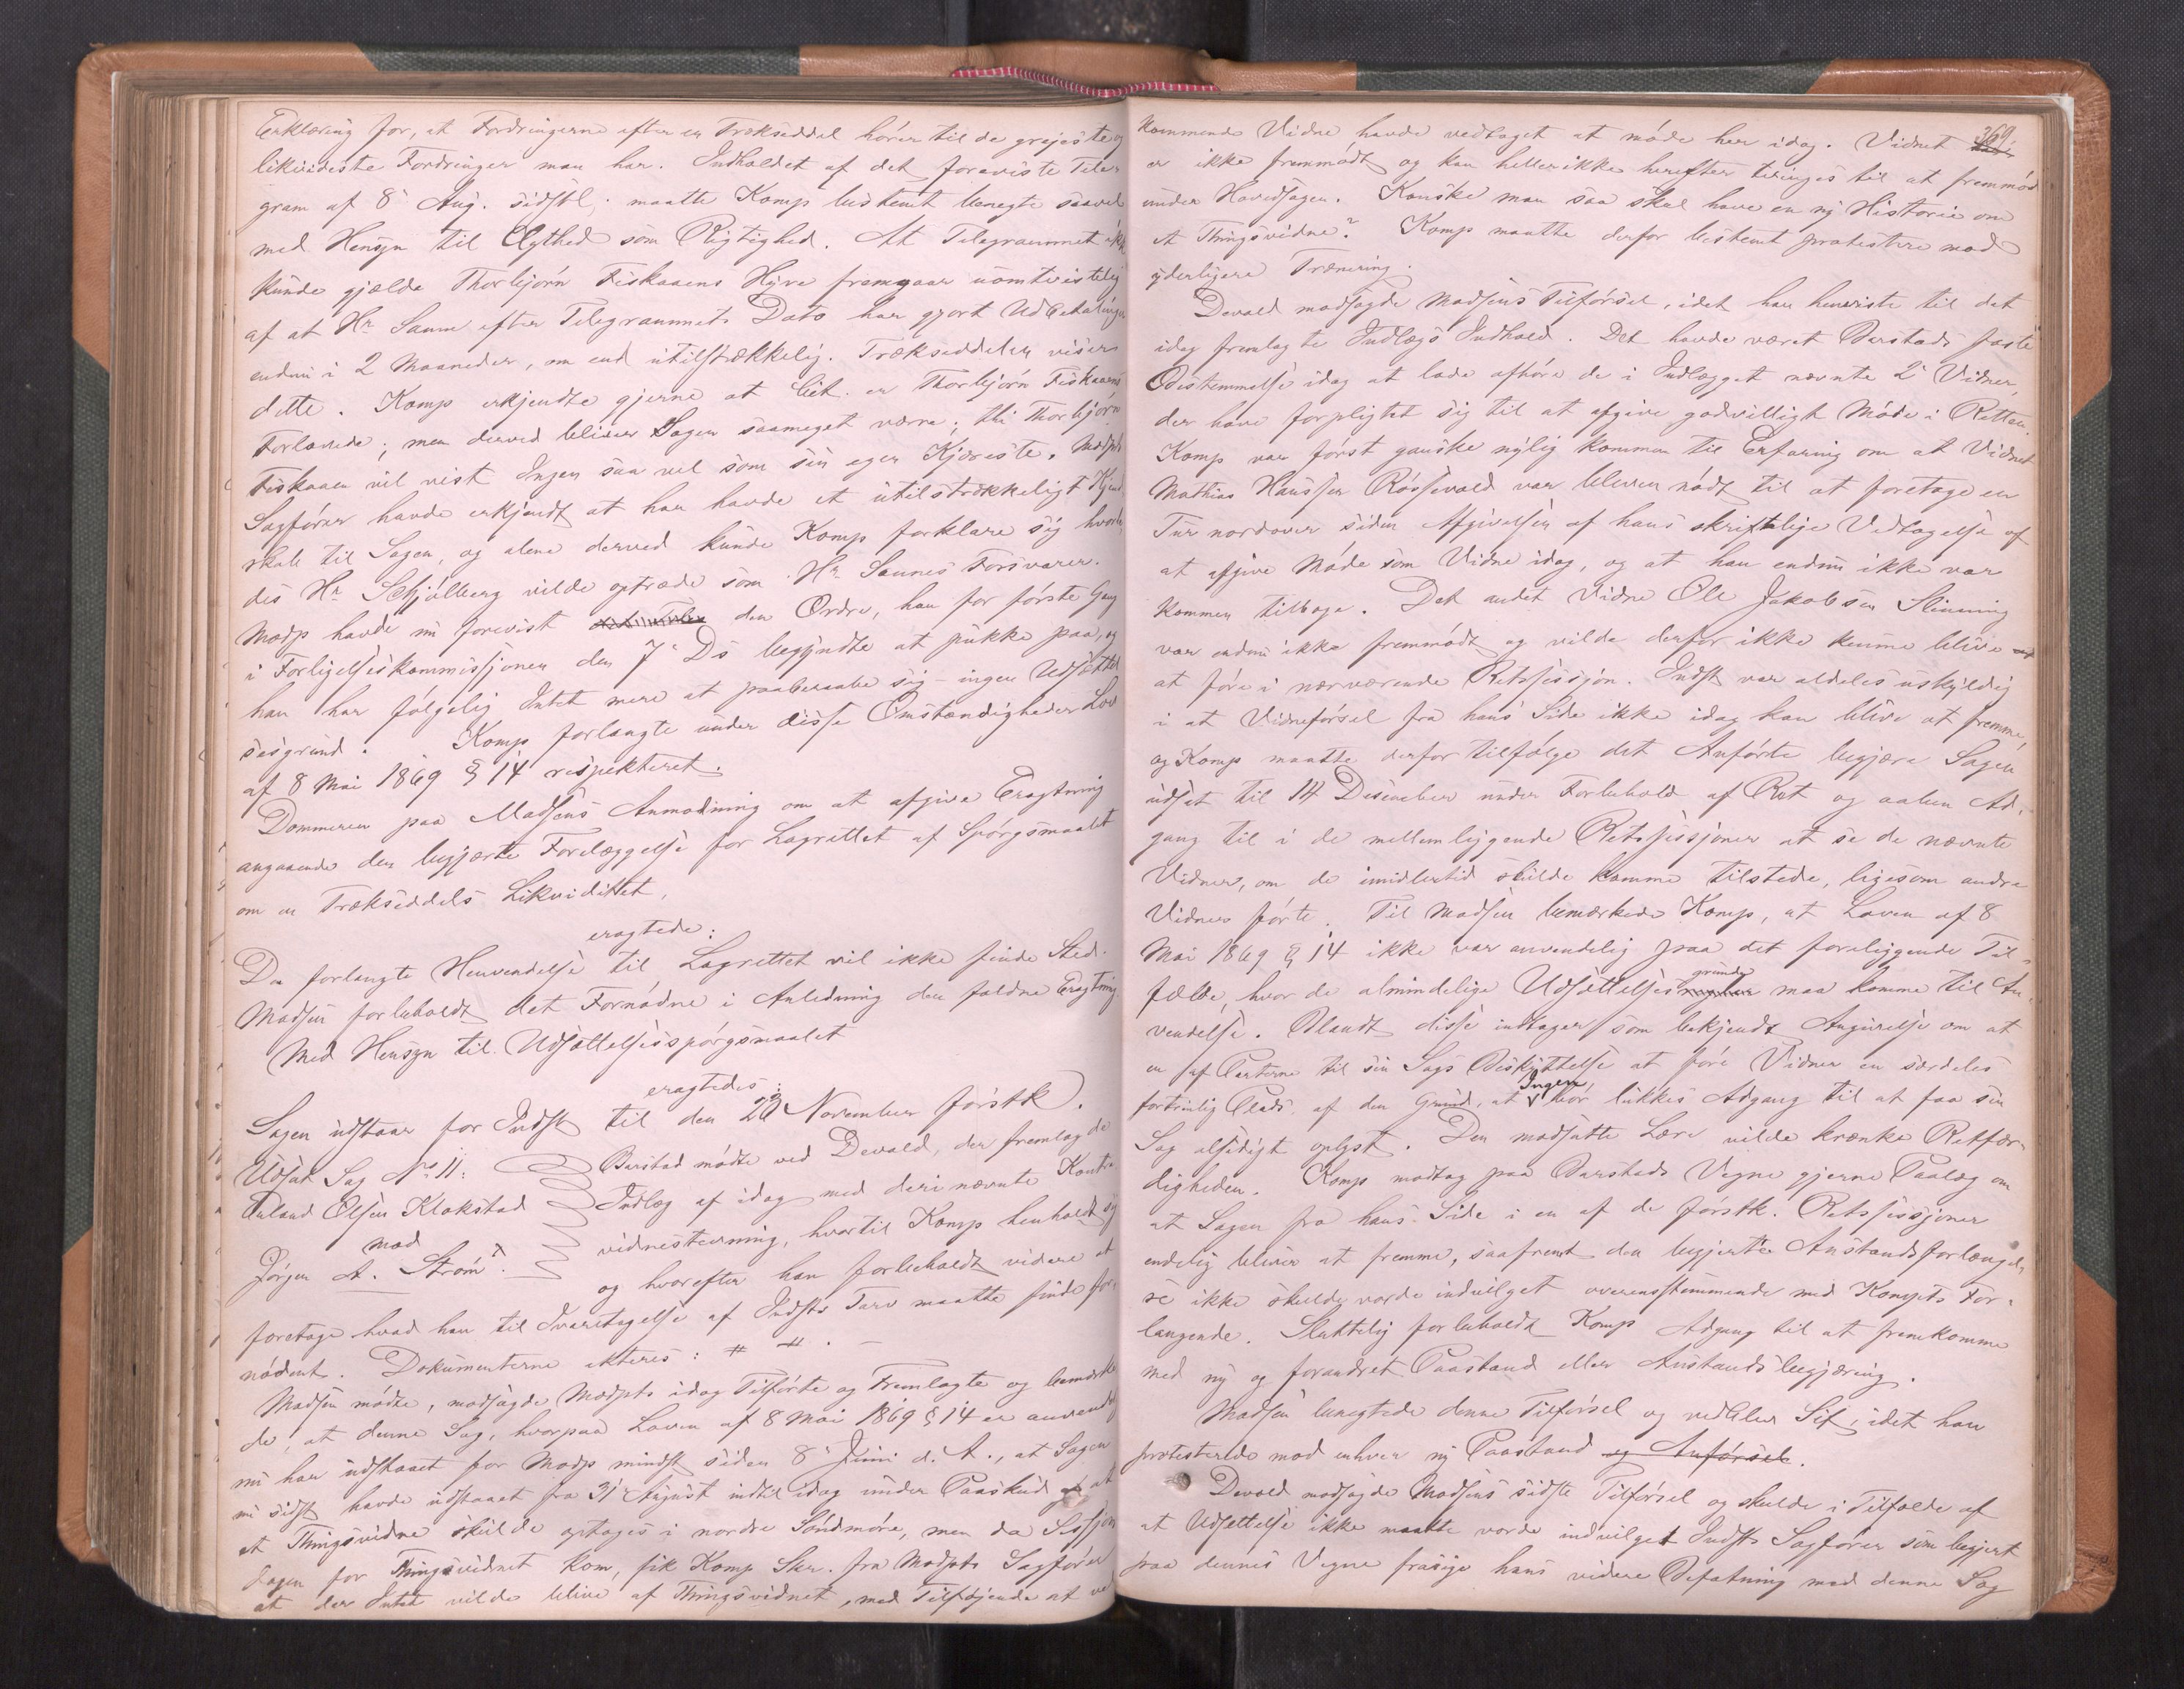 Erklæring for, at Fordringerne efter en Trækseddel hører til de grejeste og
likvideste Fordringer man har. Indholdet af det foreviste Tele-
gram af 8 Aug. sidstl. maatte Komp bestemt benegte saavel
med Hensyn til Ægthed som Rigtighed. At Telegrammet ikke
kunde gjælde Thorbjørn Fiskaaens Hyre fremgaar uomtvistelig
af at Hr Saune efter Telegrammets Dato har gjort Udbetalinger
endnu i 2 Maaneder, om end utilstrækkelig. Trækseddelen viser
dette. Komp erkjendte gjerne at Cit. er Thorbjørn Fiskaaens
Forlovede; men derved bliver Sagen saameget værre; thi Thorbjørn
Fiskaaen vil vist Ingen saa vel som sin egen Kjæreste. Modpts
Sagfører havde erkjendt at han havde et utilstrækkeligt Kjend-
skab til Sagen, og alene derved kunde Komp forklare sig hvorle-
des Hr Schjølberg vilde optræde som Hr Saunes Forsvarer.
Modp havde nu forevist den Ordre, han for første Gang
i Forligelseskommissjonen den 7 Ds begyndte at pukke paa, og
han har følgelig Intet mere at paaberaabe sig - ingen Udsættel-
sesgrund. Komp forlangte under disse Omstændigheder Lov
af 8 Mai 1869 § 14 respekteret.
Dommeren paa Madsens Anmodning om at afgive Eragtning
angaaende den begjærte Forelæggelse for Lagrettet af Spørgsmaalet
om en Trækseddels Likviditet,
eragtede:
Den forlangte Henvendelse til Lagrettet vil ikke finde Sted.
Madsen forbeholdt det Fornødne i Anledning den faldne Eragtning
Med Hensyn til Udsættelsesspørgsmaalet
eragtedes:
Sagen udstaar for Indst til den 23 November førstk.
Udsat Sag No 11: Barstad mødte ved Devold, der fremlagde
Anland Olsen Klokstad Indlæg af idag med deri nævnte Kontra
mod vidnestevning, hvortil Komp henholdt sig
Jørgen A. Strøm. og hvorefter han forbeholdt videre at
foretage hvad han til Ivaretagelse af Indsts Tarv maatte finde for-
nødent. Dokumenterne akteres: # # . —
Madsen mødte, modsagde Modpts idag Tilførte og Fremlagte og bemærke-
de, at denne Sag, hvorpaa Loven af 8 Mai 1869 § 14 er anvendelig
nu har udstaaet for Modp mindst siden 8 Juni d. A., at Sagen
nu sidst havde udstaaet fra 31 August indtil idag under Paaskud af at
et Thingsvidne skulde optages i nordre Søndmøre, men da Sessjons
dagen for Thingsvidnet kom, fik Komp Skr. fra Modpts Sagfører
at der Intet vilde blive af Thingsvidnet, med Tilføjende at ved
369.
kommende Vidne havde vedtaget at møde her idag. Vidnet
er ikke fremmødt og kan heller ikke herefter tvinges til at fremmøde
under Hovedsagen. Kanske man saa skal have en ny Historie om
et Thingsvidne? Komp maatte derfor bestemt protestere mod
yderligere Trænering.
Devold modsagde Madsens Tilførsel, idet han henviste til det
idag fremlagte Indlægs Indhold. Det havde været Barstads faste
Bestemmelse idag at lade afhøre de i Indlægget nævnte 2 Vidner,
der have forpligtet sig til at afgive godvilligt Møde i Retten.
Komp var først ganske nylig kommen til Erfaring om at Vidnet
Mathias Hanssen Røssevold var bleven nødt til at foretage en
Tur nordover siden Afgivelsen af hans skriftlige Vedtagelse af
at afgive Møde som Vidne idag, og at han endnu ikke var
kommen tilbage. Det andet Vidne Ole Jakobsen Slinning
var endnu ikke fremmødt og vilde derfor ikke kunne blive
at føre i nærværende Retssessjon. Indst var aldeles uskyldig
i at Vidneførsel fra hans Side ikke idag kan blive at fremme,
og Komp maatte derfor tilfølge det Anførte begjære Sagen
udsat til 14 December under Forbehold af Ret og aaben Ad-
gang til i de mellemliggende Retssessjoner at se de nævnte
Vidner, om de imidlertid skulde komme tilstede, ligesom andre
Vidner førte. Til Madsen bemærkede Komp, at Loven af 8
Mai 1869 § 14 ikke var anvendelig paa det foreliggende Til-
fælde, hvor de almindelige Udsættelsesgrunde maa komme til An-
vendelse. Blandt disse indtager som bekjendt Angivelse om at
en af Parterne til sin Sags Beskyttelse at føre Vidner en særdeles
fortrinlig Plads, af den Grund, at Ingen bør lukkes Adgang til at faa sin
Sag alsidigt oplyst. Den modsatte Lære vilde krænke Retfær-
digheden. Komp modtog paa Barstads Vegne gjerne Paalæg om
at Sagen fra hans Side i en af de førstk. Retssessjoner
endelig bliver at fremme, saafremt den begjærte Anstandsforlængel-
se ikke skulde vorde indvilget overensstemmende med Kompts For-
langende. Sluttelig forbeholdt Komp Adgang til at fremkomme
med ny og forandret Paastand eller Anstandsbegjæring.
Madsen benegtede denne Tilførsel og vedblev Sit, idet han
protesterede mod enhver ny Paastand og Anførsel.
Devold modsagde Madsens sidste Tilførsel og skulde i Tilfælde af
at Udsættelse ikke maatte vorde indvilget Indsts Sagfører som begjert
paa dennes Vegne frasige hans videre Befatning med denne Sag